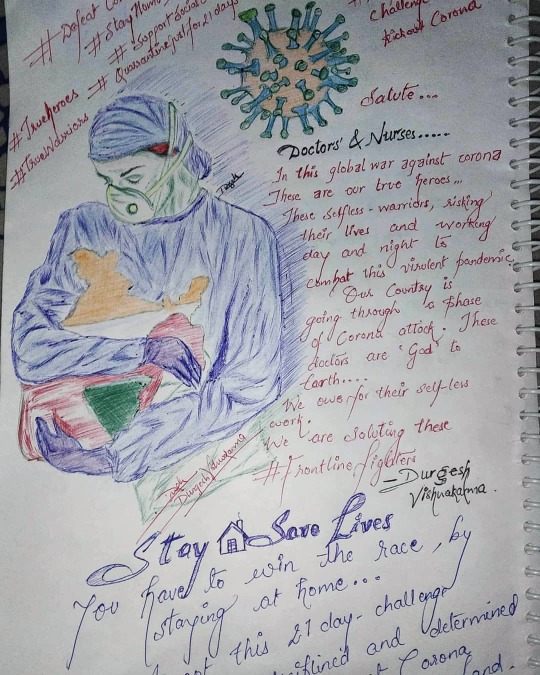 # Defeat
# Stay Home
# Support Social
# Quarantine for 21 days
#Trueheroes
#TrueWarriors
challenge
Corona
Salute...
Doctors' & Nurses.....
In this global war against corona
These are our true heroes...
These selfless-warriors, risking
their lives and working
day and night to
combat this virulent pandemic
Our Country is
going through a phase
of Corona attack. These
doctors are 'God' to
Earth....
We owe for their self-less
work.
We are saluting these
#Frontline fighters
- Durgesh
Vishwakarma.
Durgesh Vishwakarma
Stay Save Lives
You have to win the race, by
staying at home...
this 21 day-challenge
and determined
Corona